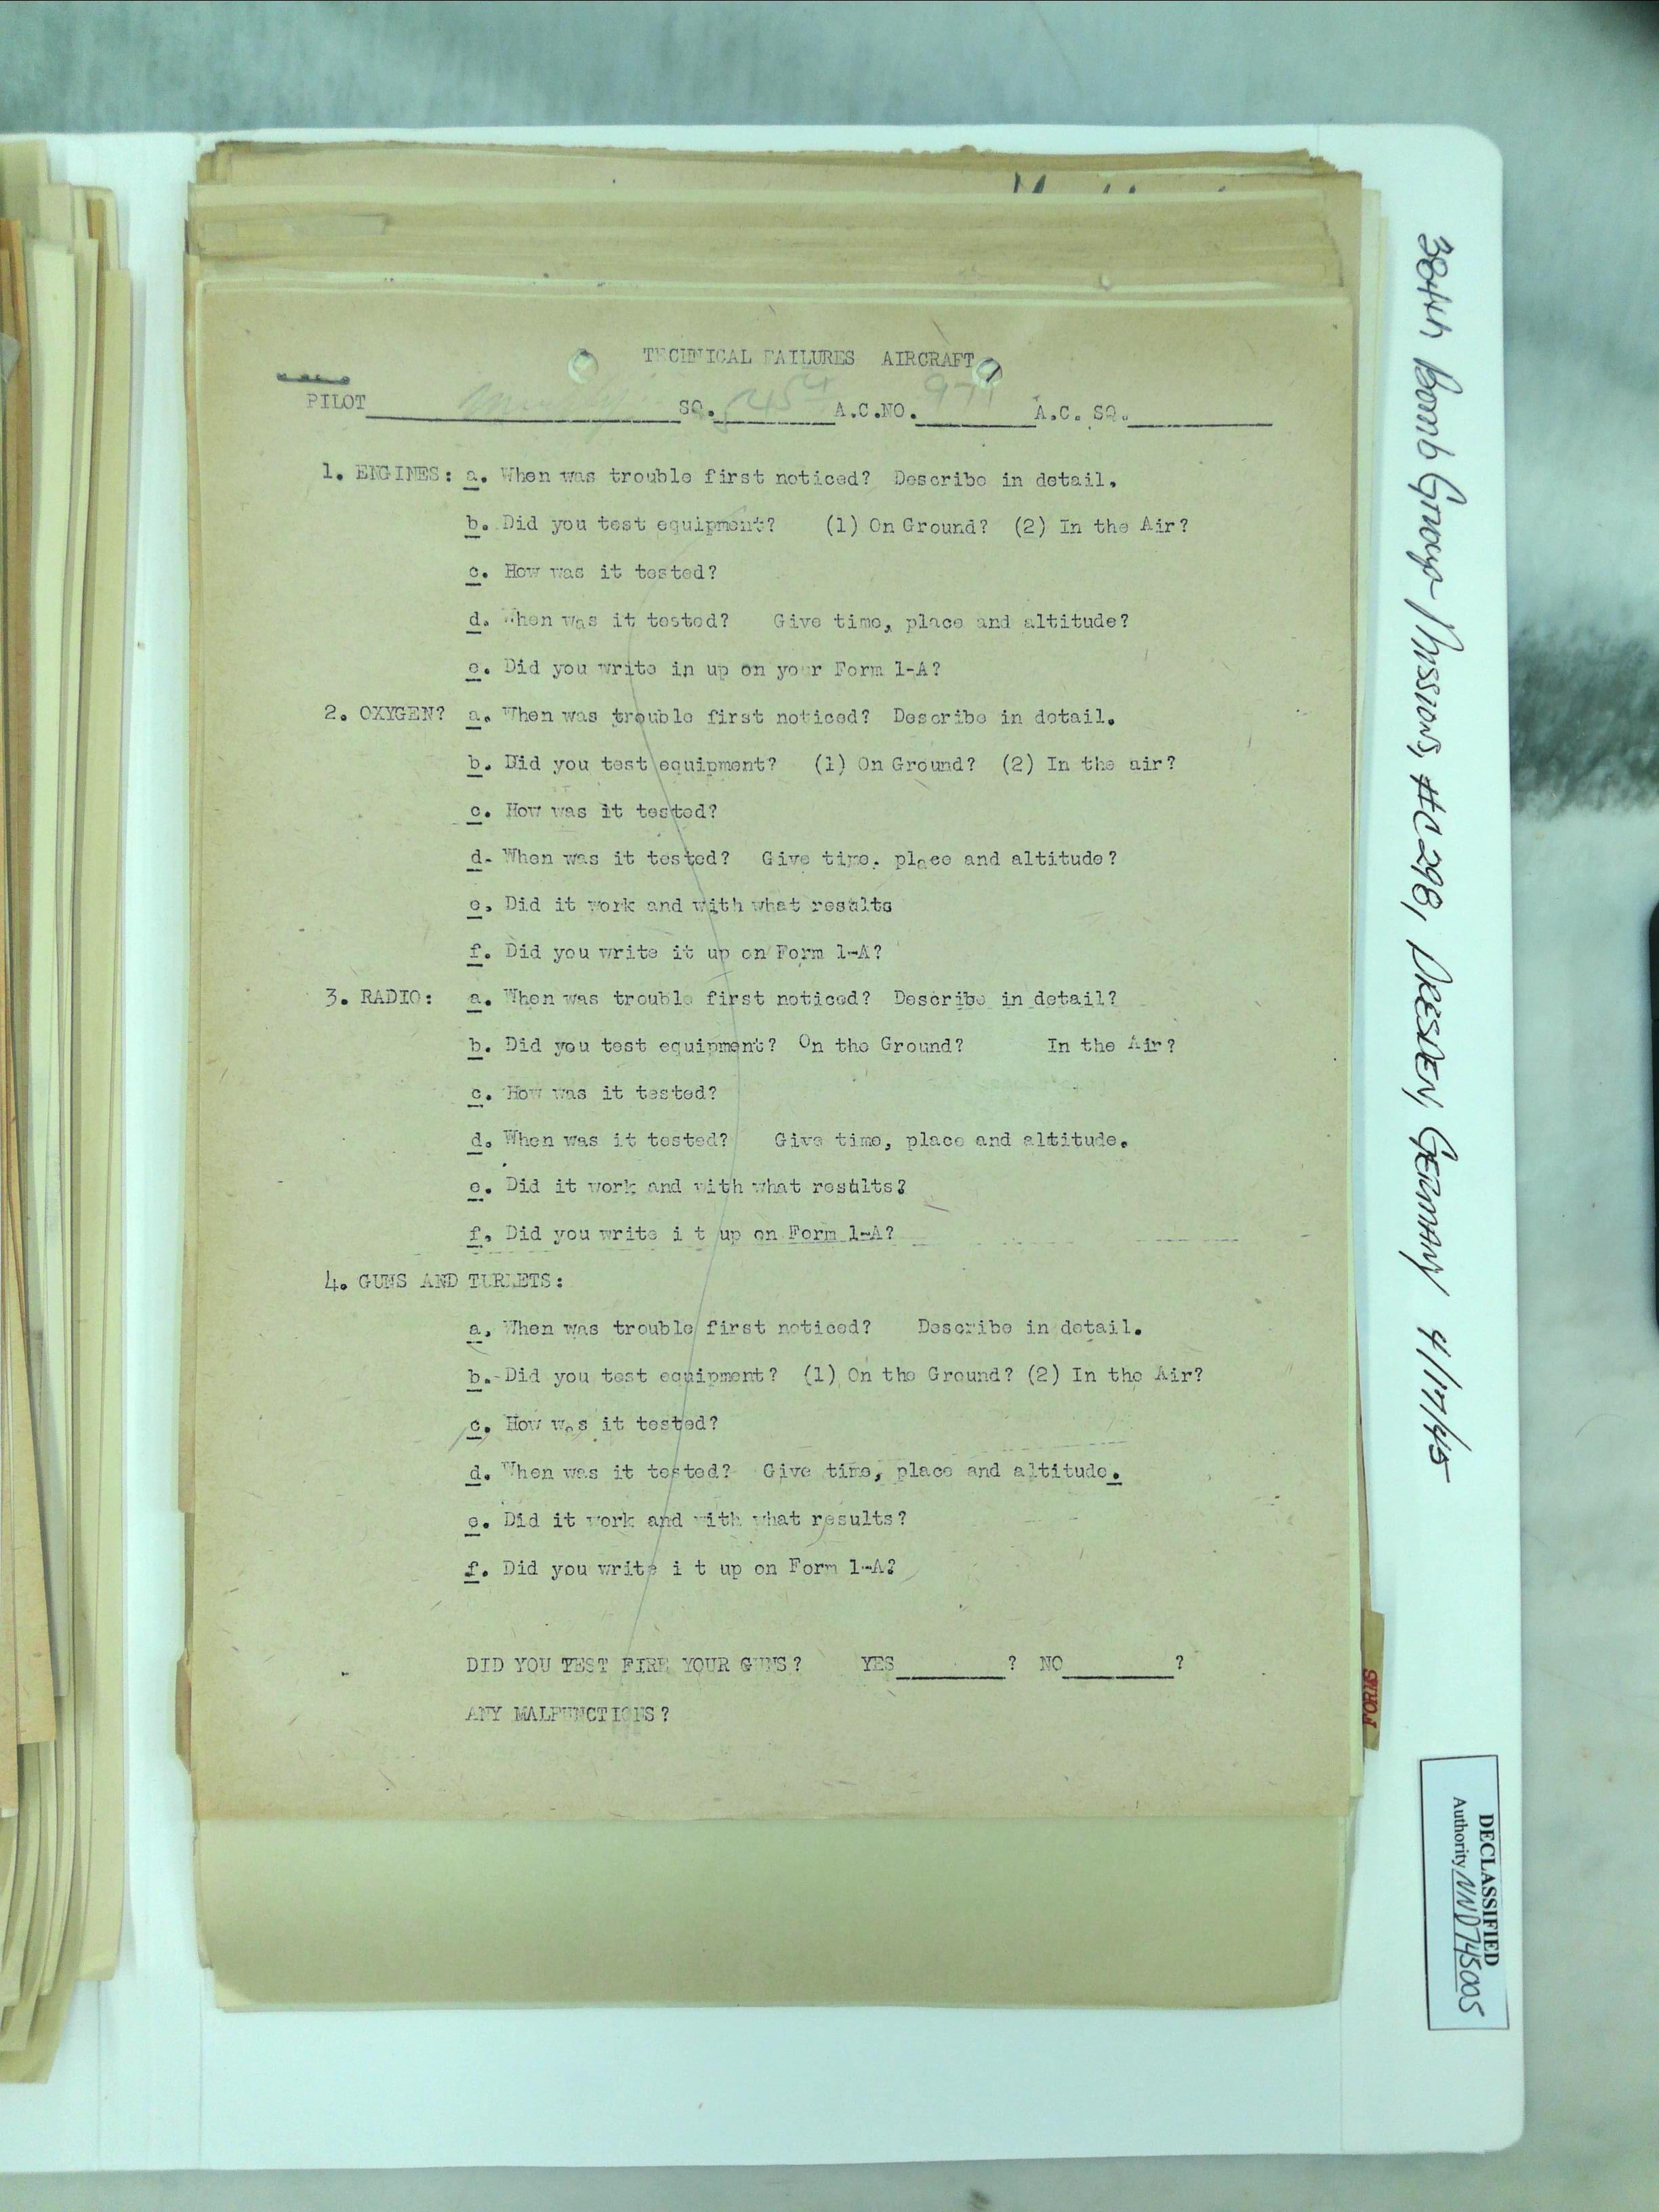 TECHNICAL FAILURES AIRCRAFT
PILOT SQ. 545 A.C.NO. A.C. SQ.
1. ENGINES: a. When was trouble first noticed? Describe in detail.
b. Did you test equipment? (1) On Ground? (2) In the Air?
c. How was it tested?
d. When was it tested? Give time, place and altitude?
e. Did you write in up on your Form 1-A?
2. OXYGEN? a. When was trouble first noticed? Describe in detail.
b. Did you test equipment? (1) On Ground? (2) In the air?
c. How was it tested?
d- When was it tested? Give time. place and altitude?
e. Did it work and with what results
f. Did you write it up on Form 1-A?
3. RADIO: a. When was trouble first noticed? Describe in detail?
b. Did you test equipment? On the Ground? In the Air?
c. How was it tested?
d. When was it tested? Give time, place and altitude.
e. Did it work and with what results?
f. Did you write i t up on Form 1-A?
4. GUNS AND TURRETS:
a. When was trouble first noticed? Describe in detail.
b.-Did you test equipment? (1) On the Ground? (2) In the Air?
c. How was it tested?
d. When was it tested? Give time, place and altitude.
e. Did it work and with what results?
f. Did you write i t up on Form 1-A?
DID YOU TEST FIRE YOUR GUNS? YES ? NO ?
ANY MALFUNCTIONS?
FORMS
384th Bomb Group Missions, #C298, DRESDEN, GERMANY 4/17/45
DECLASSIFIED
Authority NND745005